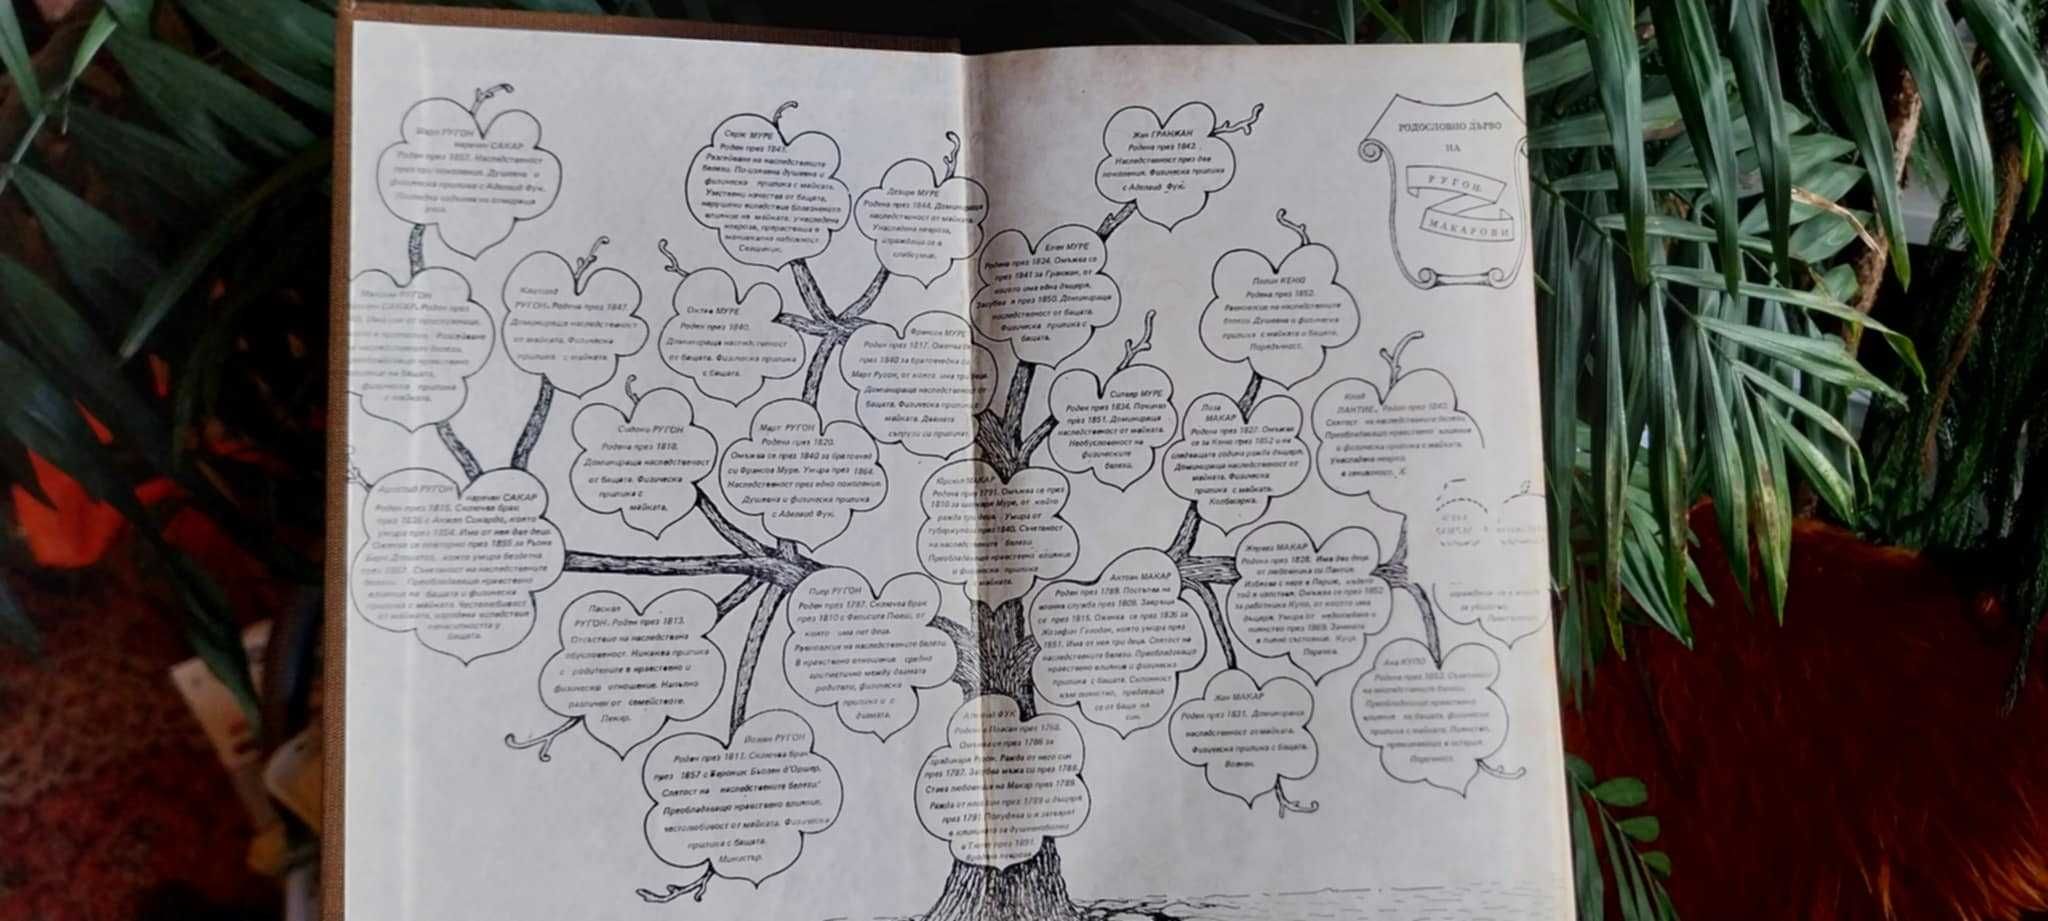 РОДОСЛОВНО ДЪРВО
НА
РУГОН-
МАКАРОВИ
РУГОН
наречен САКАР
Роден през 1857. Наследственост
през три поколения. Душевна и
физическа прилика с Аделаид Фук.
Серж МУРЕ
Роден през 1841.
Разсейване на наследствените
белези. По-изявена душевна и
физическа прилика с майката.
Умствени качества от бащата,
нарушени вследствие болезненото
влияние на майката. Унаследена
невроза, прераснала в
маниакална набожност.
Свещеник.
Дезире МУРЕ
Родена през 1844. Доминираща
наследственост от майката.
Унаследена невроза,
изродила се в
слабоумие.
Жан ГРАНЖАН
Родена през 1842.
Наследственост през две
поколения. Физическа прилика
с Аделаид Фук.
Елен МУРЕ
Родена през 1824. Омъжва се
през 1841 за Гранжан, от
когото има една дъщеря.
Загубва я през 1850. Доминираща
наследственост от бащата.
Физическа прилика с
бащата.
Полин КЕНЮ
Родена през 1852.
Равновесие на наследствените
белези. Душевна и физическа
прилика с майката и бащата.
Порядъчност.
РУГОН
САКАР. Роден през
физическа прилика
с майката.
РУГОН. Родена през 1847.
Доминираща наследственост
от майката. Физическа
прилика с майката.
Октав МУРЕ
Роден през 1840.
Доминираща наследственост
от бащата. Физическа прилика
с бащата.
Франсоа МУРЕ
Роден през 1817. Оженва се
през 1840 за братовчедка си
Март Ругон, от която има три деца.
Доминираща наследственост от
бащата. Физическа прилика с
майката. Двамата
съпрузи си приличат.
Силвер МУРЕ
Роден през 1834. Починал
през 1851. Доминираща
наследственост от майката.
Необусловеност на
физическите
белези.
Лиза
МАКАР
Родена през 1827. Омъжва
се за Кеню през 1852 и на
следващата година ражда дъщеря.
Доминираща наследственост от
майката. Физическа
прилика с майката.
Колбасарка.
Клод
ЛАНТИЕ. Роден през 1842.
Слятост на наследствените белези.
Преобладаващо нравствено влияние
и физическа прилика с майката.
Унаследена невроза,
Сидони РУГОН
Родена през 1818.
Доминираща наследственост
от бащата. Физическа
прилика с
майката.
Март РУГОН
Родена през 1820.
Омъжва се през 1840 за братовчед
си Франсоа Муре. Умира през 1864.
Наследственост през едно поколение.
Душевна и физическа прилика
с Аделаид Фук.
Аристид РУГОН наречен САКАР
Роден през 1815. Сключва брак
през 1836 с Анжел Сикардо, която
умира през 1854. Има от нея две деца.
Оженва се повторно през 1855 за Рьоне
която умира бездетна
през 1867. Съчетаност на наследствените
белези. Преобладаващо нравствено
влияние на бащата и физическа
прилика с майката. Честолюбивост
от майката, изродена вследствие
ненаситността у
бащата.
Юрсюл МАКАР
Родена през 1791. Омъжва се през
1810 за шапкаря Муре, от който
ражда три деца. Умира от
туберкулоза през 1840. Съчетаност
на наследствените белези.
Преобладаващо нравствено влияние
и физическа прилика
с майката.
Паскал
РУГОН. Роден през 1813.
Отсъствие на наследствена
обусловеност. Никаква прилика
с родителите в нравствено и
физическо отношение. Напълно
различен от семейството.
Лекар.
Пиер РУГОН
Роден през 1787. Сключва брак
през 1810 с Фелисите Пюеш, от
която има пет деца.
Равновесие на наследствените белези.
В нравствено отношение средно
аритметично между двамата
родители, физическа
прилика и с
двамата.
Антоан МАКАР
Роден през 1789. Постъпва на
военна служба през 1809. Завръща
се през 1815. Оженва се през 1826 за
Жозефин Годар, която умира през
1851. Има от нея три деца. Слятост на
наследствените белези. Преобладаващо
нравствено влияние и физическа
прилика с бащата. Склонност
към пиянство, предаваща
се от баща на
син.
Жервез МАКАР
Родена през 1828. Има две деца
от любовника си Лантие.
Избягва с него в Париж, където
той я изоставя. Омъжва се през 1852
за работника Купо, от когото има
дъщеря. Умира от недояждане и
пиянство през 1869. Зачената
в пияно състояние. Куца.
Перачка.
Жан МАКАР
Роден през 1831. Доминираща
наследственост от майката.
Физическа прилика с бащата.
Военен.
Ана КУПО
Родена през 1852. Съчетаност
на наследствените белези.
Преобладаващо нравствено
влияние на бащата, физическа
прилика с майката. Пиянство,
Порочност.
Йожен РУГОН
Роден през 1811. Сключва брак
през 1857 с Вероник Бьолен д'Оршер.
Слятост на наследствените белези.
Преобладаващо нравствено влияние,
честолюбивост от майката. Физическа
прилика с бащата.
Министър.
Аделаид ФУК
Родена в Пласан през 1768.
Омъжва се през 1786 за
градинаря Ругон. Ражда от него син
през 1787. Загубва мъжа си през 1788.
Става любовница на Макар през 1789.
Ражда от него син през 1789 и дъщеря
през 1791. Полудява и я затварят
в клиниката за душевноболни
в Тюлет през 1851.